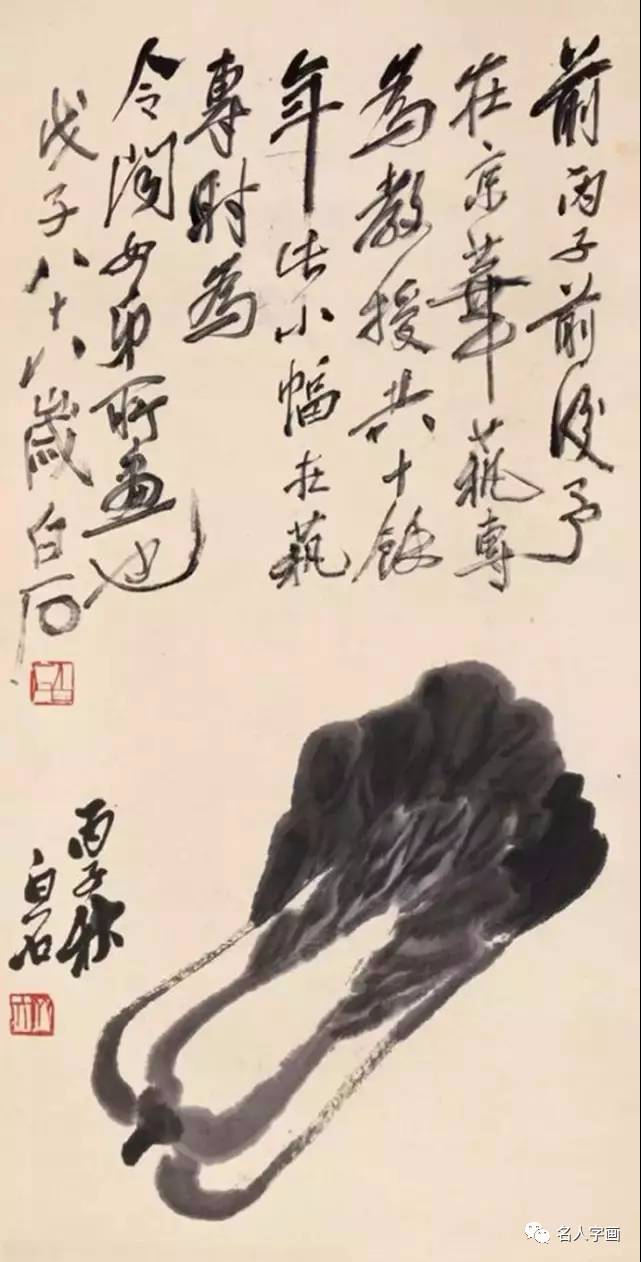 前丙子前後予
在京華藝專
為教授共十餘
年此小幅在藝
專时為
令女弟所畫也
戊子八十八歲白石
丙子秋
白石
名人字画